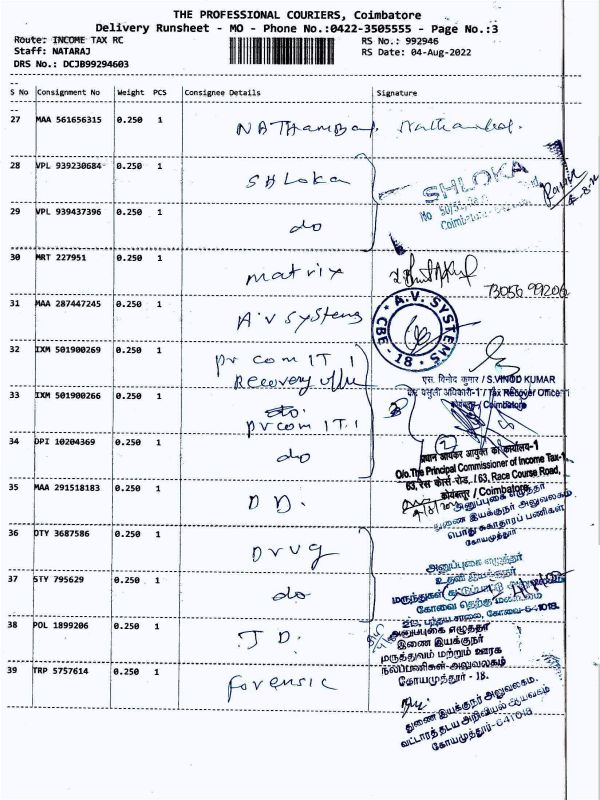 THE PROFESSIONAL COURIERS, Coimbatore
Delivery Runsheet - MO - Phone No.:0422-3505555 - Page No.:3
Route: INCOME TAX RC
RS No.: 992946
Staff: NATARAJ
RS Date: 04-Aug-2022
DRS No.: DCJB99294603
S No Consignment No Weight PCS Consignee Details Signature
27 MAA 561656315 0.250 1
28 VPL 939230684 0.250 1 SHLoka
SHLOKA
29 VPL 939437396 0.250 1 do
30 MRT 227951 0.250 1 matrix
73056 99206
31 MAA 287447245 0.250 1 A.V Systems
A.V. SYSTEMS
CBE - 18
32 IXM 501900269 0.250 1 pr com IT 1
Recovery
एस. विनोद कुमार / S.VINOD KUMAR
कर वसूली अधिकारी-1 / Tax Recover Officer-1
कोयंबटूर / Coimbatore
33 IXM 501900266 0.250 1 do
pr com IT.1
2
34 DPI 10204369 0.250 1 do
प्रधान आयकर आयुक्त का कार्यालय-1
O/o.The Principal Commissioner of Income Tax-1
63, रेस कोर्स रोड, / 63, Race Course Road,
कोयंबटूर / Coimbatore
35 MAA 291518183 0.250 1 DD.
அனுப்புகை எழுத்தர்
துணை இயக்குநர் அலுவலகம்
பொது சுகாதாரப் பணிகள்
கோயமுத்தூர்
36 DTY 3687586 0.250 1 Drug
அனுப்புகை எழுத்தர்
உதவி இயக்குநர்
மருந்துகள்
கோவை தெற்கு மண்டலம்
37 STY 795629 0.250 1 do
38 POL 1899206 0.250 1 J D.
அனுப்புகை எழுத்தர்
இணை இயக்குநர்
மருத்துவம் மற்றும் ஊரக
நலப்பணிகள் அலுவலகம்
கோயமுத்தூர் - 18.
39 TRP 5757614 0.250 1 forensic
துணை இயக்குநர் அலுவலகம்
வட்டாரத் தடய அறிவியல் ஆய்வகம்
கோயமுத்தூர்-641018